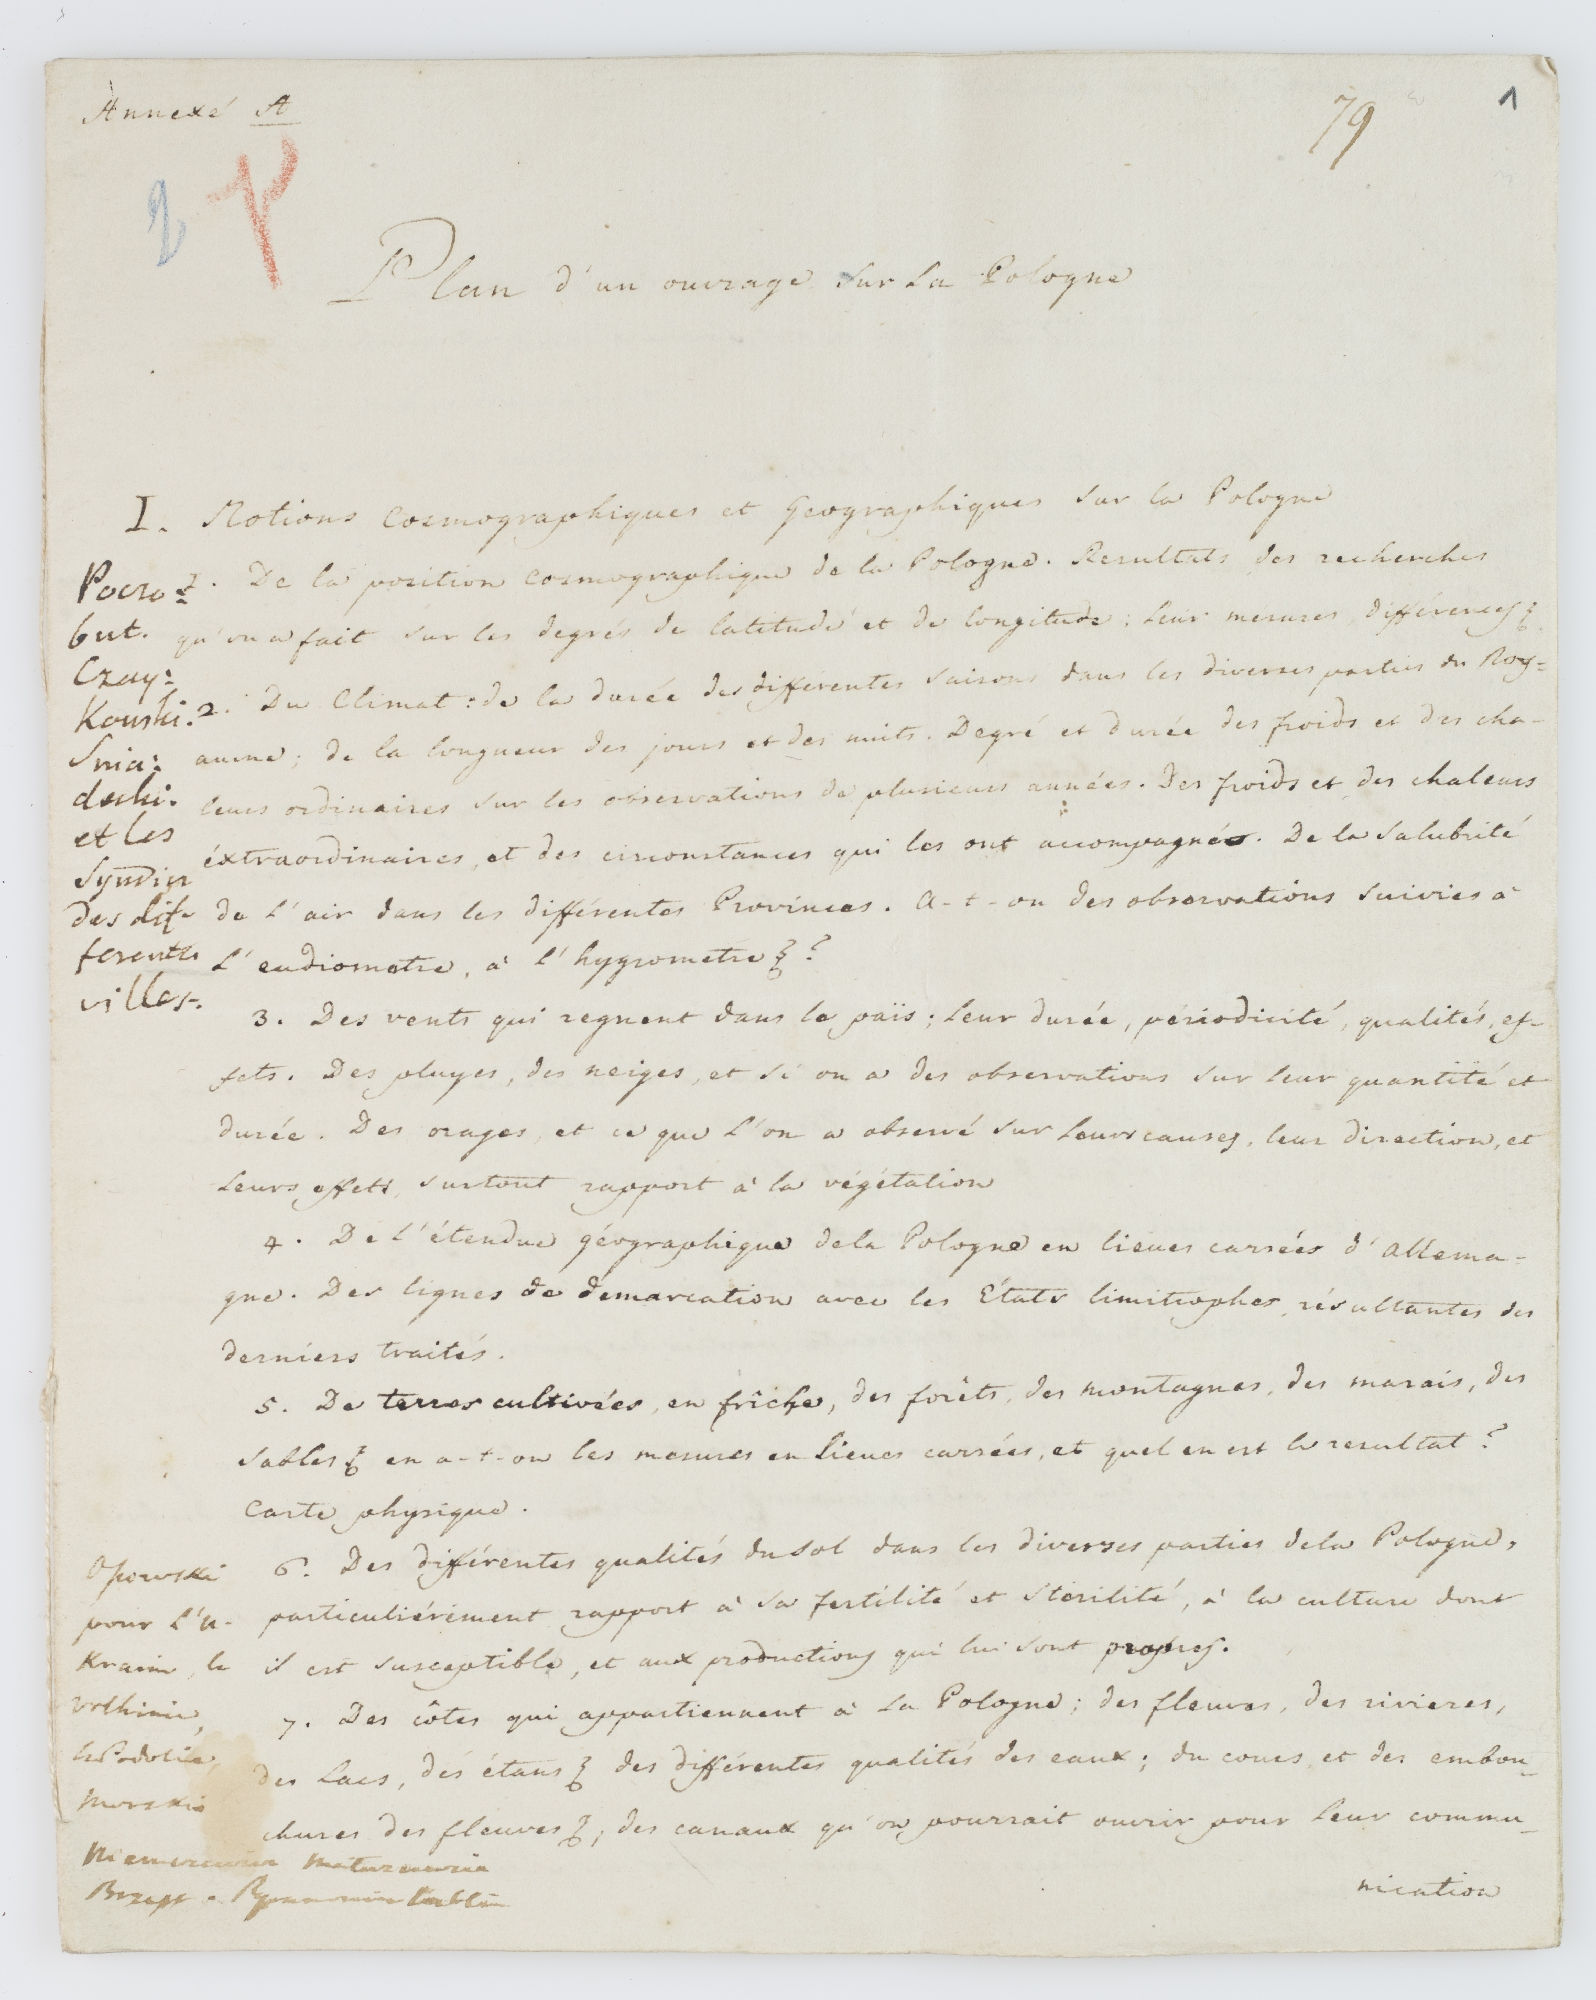 Annexé A
79
1
Plan d'un ouvrage sur La Pologne
I. Notions Cosmographiques et Géographiques sur la Pologne
1. De la position cosmographique de la Pologne. Resultats des recherches
qu'on a fait sur les degrés de latitude et de longitude; leur mesures, différences &
2. Du Climat: de la durée des différentes saisons dans les diverses parties du Roy=
aume; de la longueur des jours et des nuits. Degré et durée des froids et des cha-
leurs ordinaires sur les observations de plusieurs années. Des froids et des chaleurs
éxtraordinaires, et des circonstances qui les ont accompagnés. De la Salubrité
de l'air dans les différentes Provinces. a-t-on des observations suivies à
l'eudiometre, à l'hygrometre &?
Poczo=
but.
Czay=
Kowski.
Snia=
decki.
et les
Syndics
des dif-
ferentes
villes.
3. Des vents qui regnent dans le païs; leur durée, périodicité, qualités, ef-
fets. Des pluyes, des neiges, et si on a des observations sur leur quantité et
durée. Des orages, et ce que l'on a observé sur leurs causes, leur direction, et
leurs effets, surtout rapport à la végétation
4. De l'étendue géographique de la Pologne en lieues carrées d'allema-
gne. Des lignes de demarcation avec les États limitrophes, résultantes des
derniers traités.
5. De terres cultivées, en frîche, des forêts, des montagnes, des marais, des
sables & en a-t-on les mesures en lieues carrées, et quel en est le resultat?
Carte physique.
6. Des différentes qualités du sol dans les diverses parties de la Pologne,
particuliérement rapport à sa fertilité et stérilité, à la culture dont
il est susceptible, et aux productions qui lui sont propres.
7. Des côtes qui appartiennent à la Pologne; des fleuves, des rivieres,
des Lacs, des étans & des différentes qualités des eaux; du cours, et des embou-
chures des fleuves &; des canaux qu'on pourrait ouvrir pour leur commu-
nication
Opewski
pour l'U-
Kraine, la
Volhinie,
la Podolie,
Morski